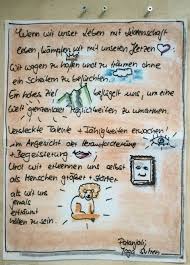 Wenn wir unser Leben mit Leidenschaft
leben, kämpfen wir mit unseren Herzen
Wir wagen zu hoffen und zu träumen ohne
ein Scheitern zu befürchten.
Ein hohes Ziel beflügelt uns, um eine
Welt grenzenloser Möglichkeiten zu umarmen.
Versteckte Talente + Fähigkeiten erwachen
im Angesicht der Herausforderung
+ Begeisterung
Und wir erkennen uns selbst
als Menschen größer + stärker
als wir uns
jemals
erträumt
hätten zu sein.
Patanjali,
Yoga Sutren